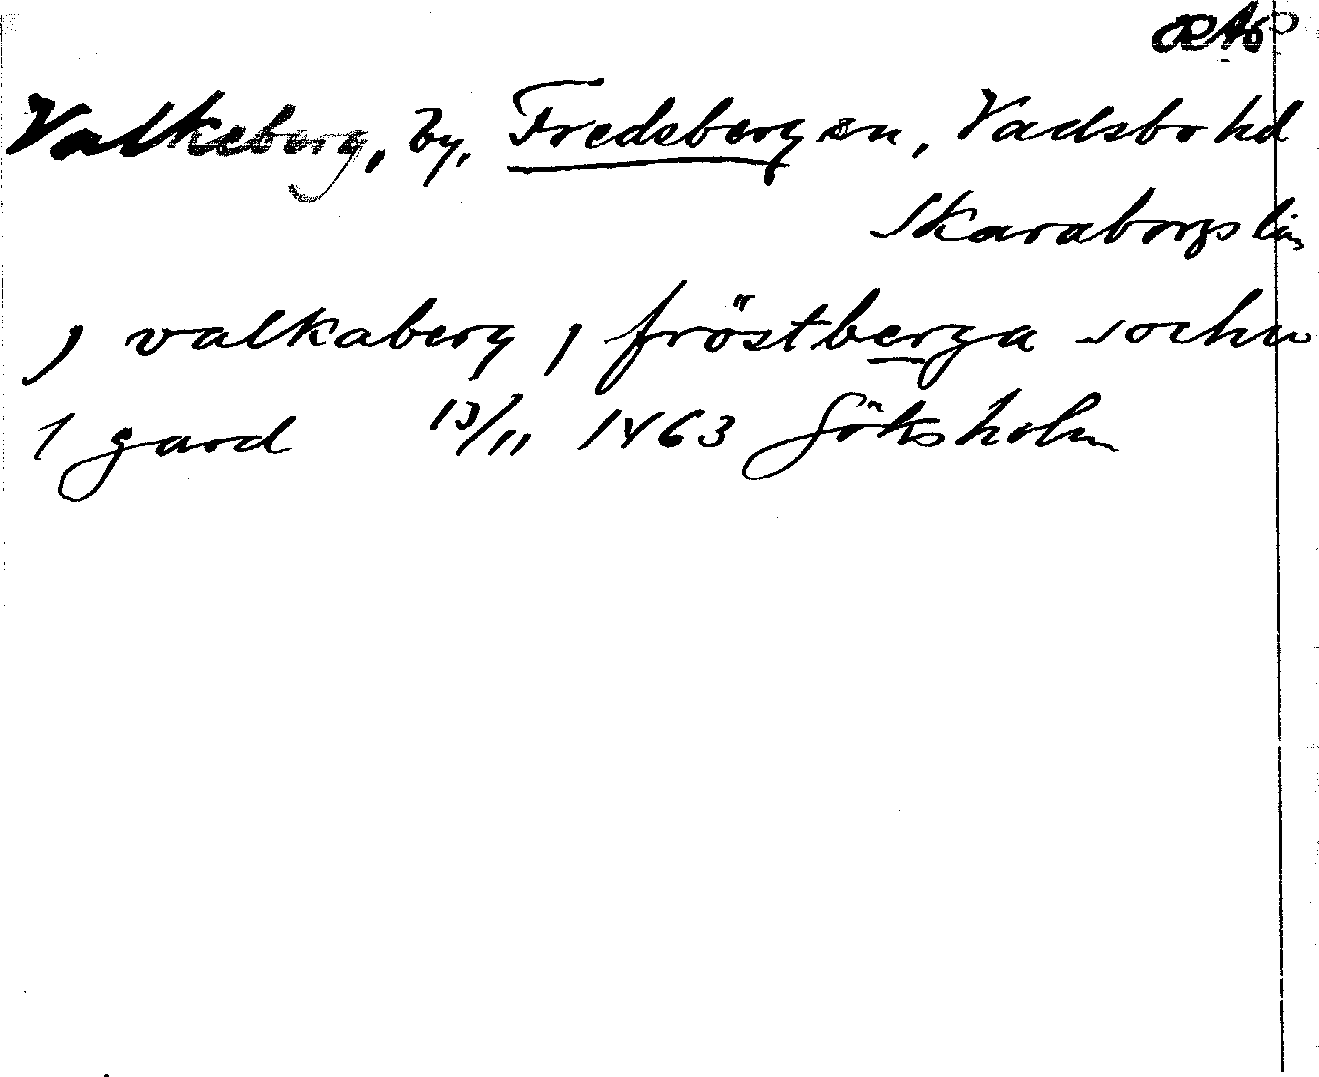 Valkeberg, by, Fredsberg sn, Vadsbo hd
Skaraborgs län
j valkaberg j fröstberga sochn
1 gard 13/11 1463 Göksholm